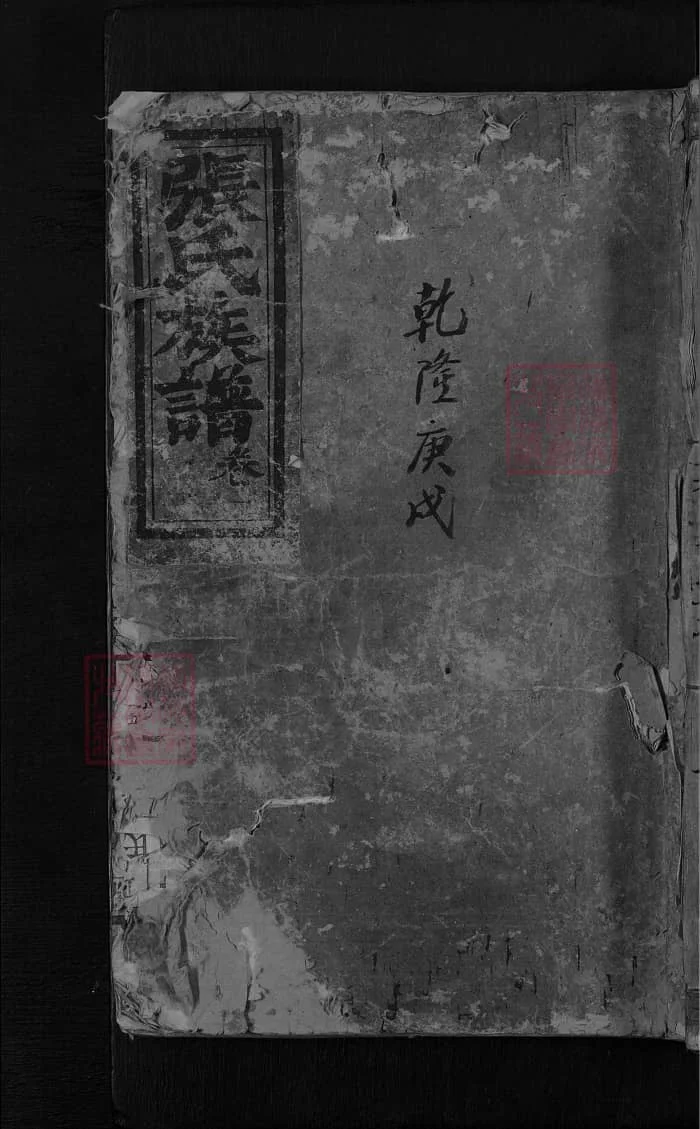 乾隆庚戌
張氏族譜
卷
氏